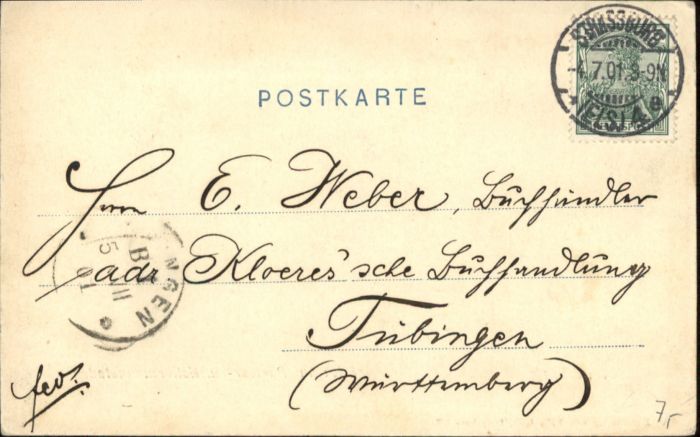 STRASSBURG
-4.7.01.8-9N.
* (ELS) 4 B
POSTKARTE
Herrn E. Weber, Buchhändler
adr. Kloeres'sche Buchhandlung
Tübingen
(Württemberg)
NGEN
5 VII
01
frei.
7,-